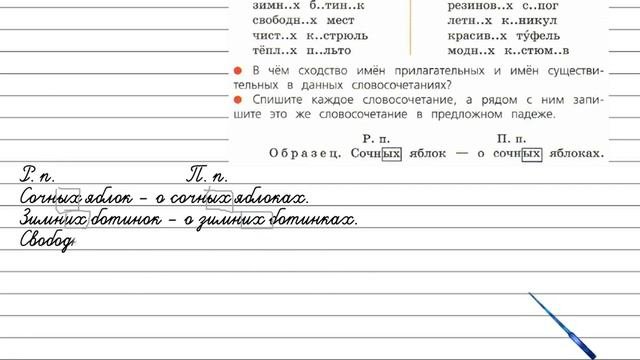 зимн..х б..тин..к
резинов..х с..пог
свободн..х мест
летн..х к..никул
чист..х к..стрюль
красив..х ту́фель
тёпл..х п..льто
модн..х к..стюм..в
В чём сходство имён прилагательных и имён существи-
тельных в данных словосочетаниях?
Спишите каждое словосочетание, а рядом с ним запи-
шите это же словосочетание в предложном падеже.
Р. п. П. п.
Образец. Сочных яблок — о сочных яблоках.
Р. п. П. п.
Сочных яблок – о сочных яблоках.
Зимних ботинок – о зимних ботинках.
Свобод